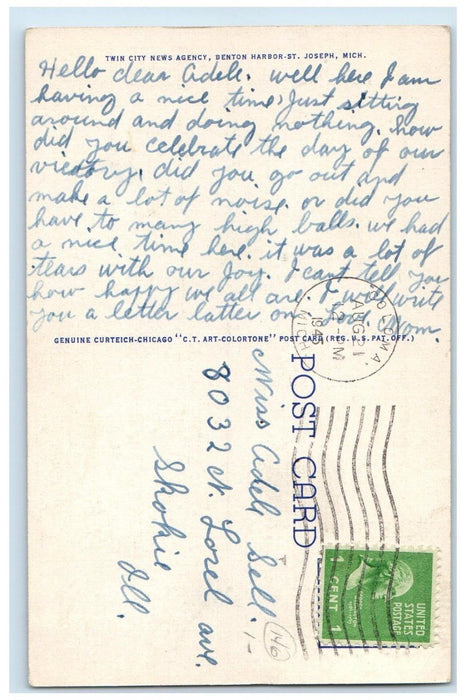 TWIN CITY NEWS AGENCY, BENTON HARBOR-ST. JOSEPH, MICH.
Hello dear Adele. well here I am
having a nice time. Just sitting
around and doing nothing. how
did you celebrate the day of our
victory. did you go out and
make a lot of noise. or did you
have to many high balls. we had
a nice time here. it was a lot of
tears with our Joy. I cant tell you
how happy we all are. I will write
you a letter latter on. Love Mom.
GENUINE CURTEICH-CHICAGO "C.T. ART-COLORTONE" POST CARD (REG. U.S. PAT. OFF.)
COLOMA.
AUG 21
2-PM
1945
MICH.
POST CARD
Miss Adele Sell.
8032 N. Lorel ave.
Skokie
Ill.
1-
146
UNITED
STATES
POSTAGE
1 CENT 1